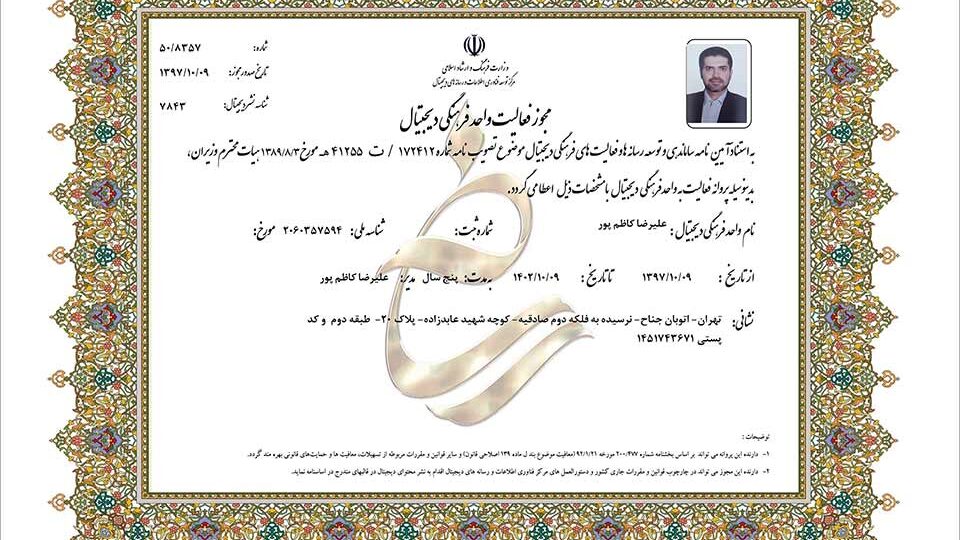 وزارت فرهنگ و ارشاد اسلامی
مرکز توسعه فناوری اطلاعات و رسانه های دیجیتال
شماره: ۵۰/۸۳۵۷
تاریخ صدور مجوز: ۱۳۹۷/۱۰/۰۹
شناسه نشر دیجیتال: ۷۸۴۳
مجوز فعالیت واحد فرهنگی دیجیتال
به استناد آیین نامه ساماندهی و توسعه رسانه ها و فعالیت های فرهنگی دیجیتال موضوع تصویب نامه شماره ۱۷۲۴۱۲ / ت ۴۱۲۵۵ هـ مورخ ۱۳۸۹/۸/۳ هیات محترم وزیران،
بدینوسیله پروانه فعالیت به واحد فرهنگی دیجیتال با مشخصات ذیل اعطا می گردد.
نام واحد فرهنگی دیجیتال: علیرضا کاظم پور شماره ثبت: شناسه ملی: ۲۰۶۰۳۵۷۵۹۴ مورخ:
از تاریخ: ۱۳۹۷/۱۰/۰۹ تا تاریخ: ۱۴۰۲/۱۰/۰۹ به مدت: پنج سال مدیر: علیرضا کاظم پور
نشانی: تهران- اتوبان جناح- نرسیده به فلکه دوم صادقیه- کوچه شهید عابدزاده- پلاک ۲۰- طبقه دوم و کد
پستی ۱۴۵۱۷۴۳۶۷۱
توضیحات:
۱- دارنده این پروانه می تواند بر اساس بخشنامه شماره ۲۰۰/۴۷۷ مورخه ۹۲/۱/۲۱ (معافیت موضوع بند ل ماده ۱۳۹ اصلاحی قانون) و سایر قوانین و مقررات مربوطه از تسهیلات، معافیت ها و حمایت‌های قانونی بهره مند گردد.
۲- دارنده این مجوز می تواند در چارچوب قوانین و مقررات جاری کشور و دستورالعمل های مرکز فناوری اطلاعات و رسانه های دیجیتال اقدام به نشر محتوای دیجیتال در قالبهای مندرج در اساسنامه نماید.